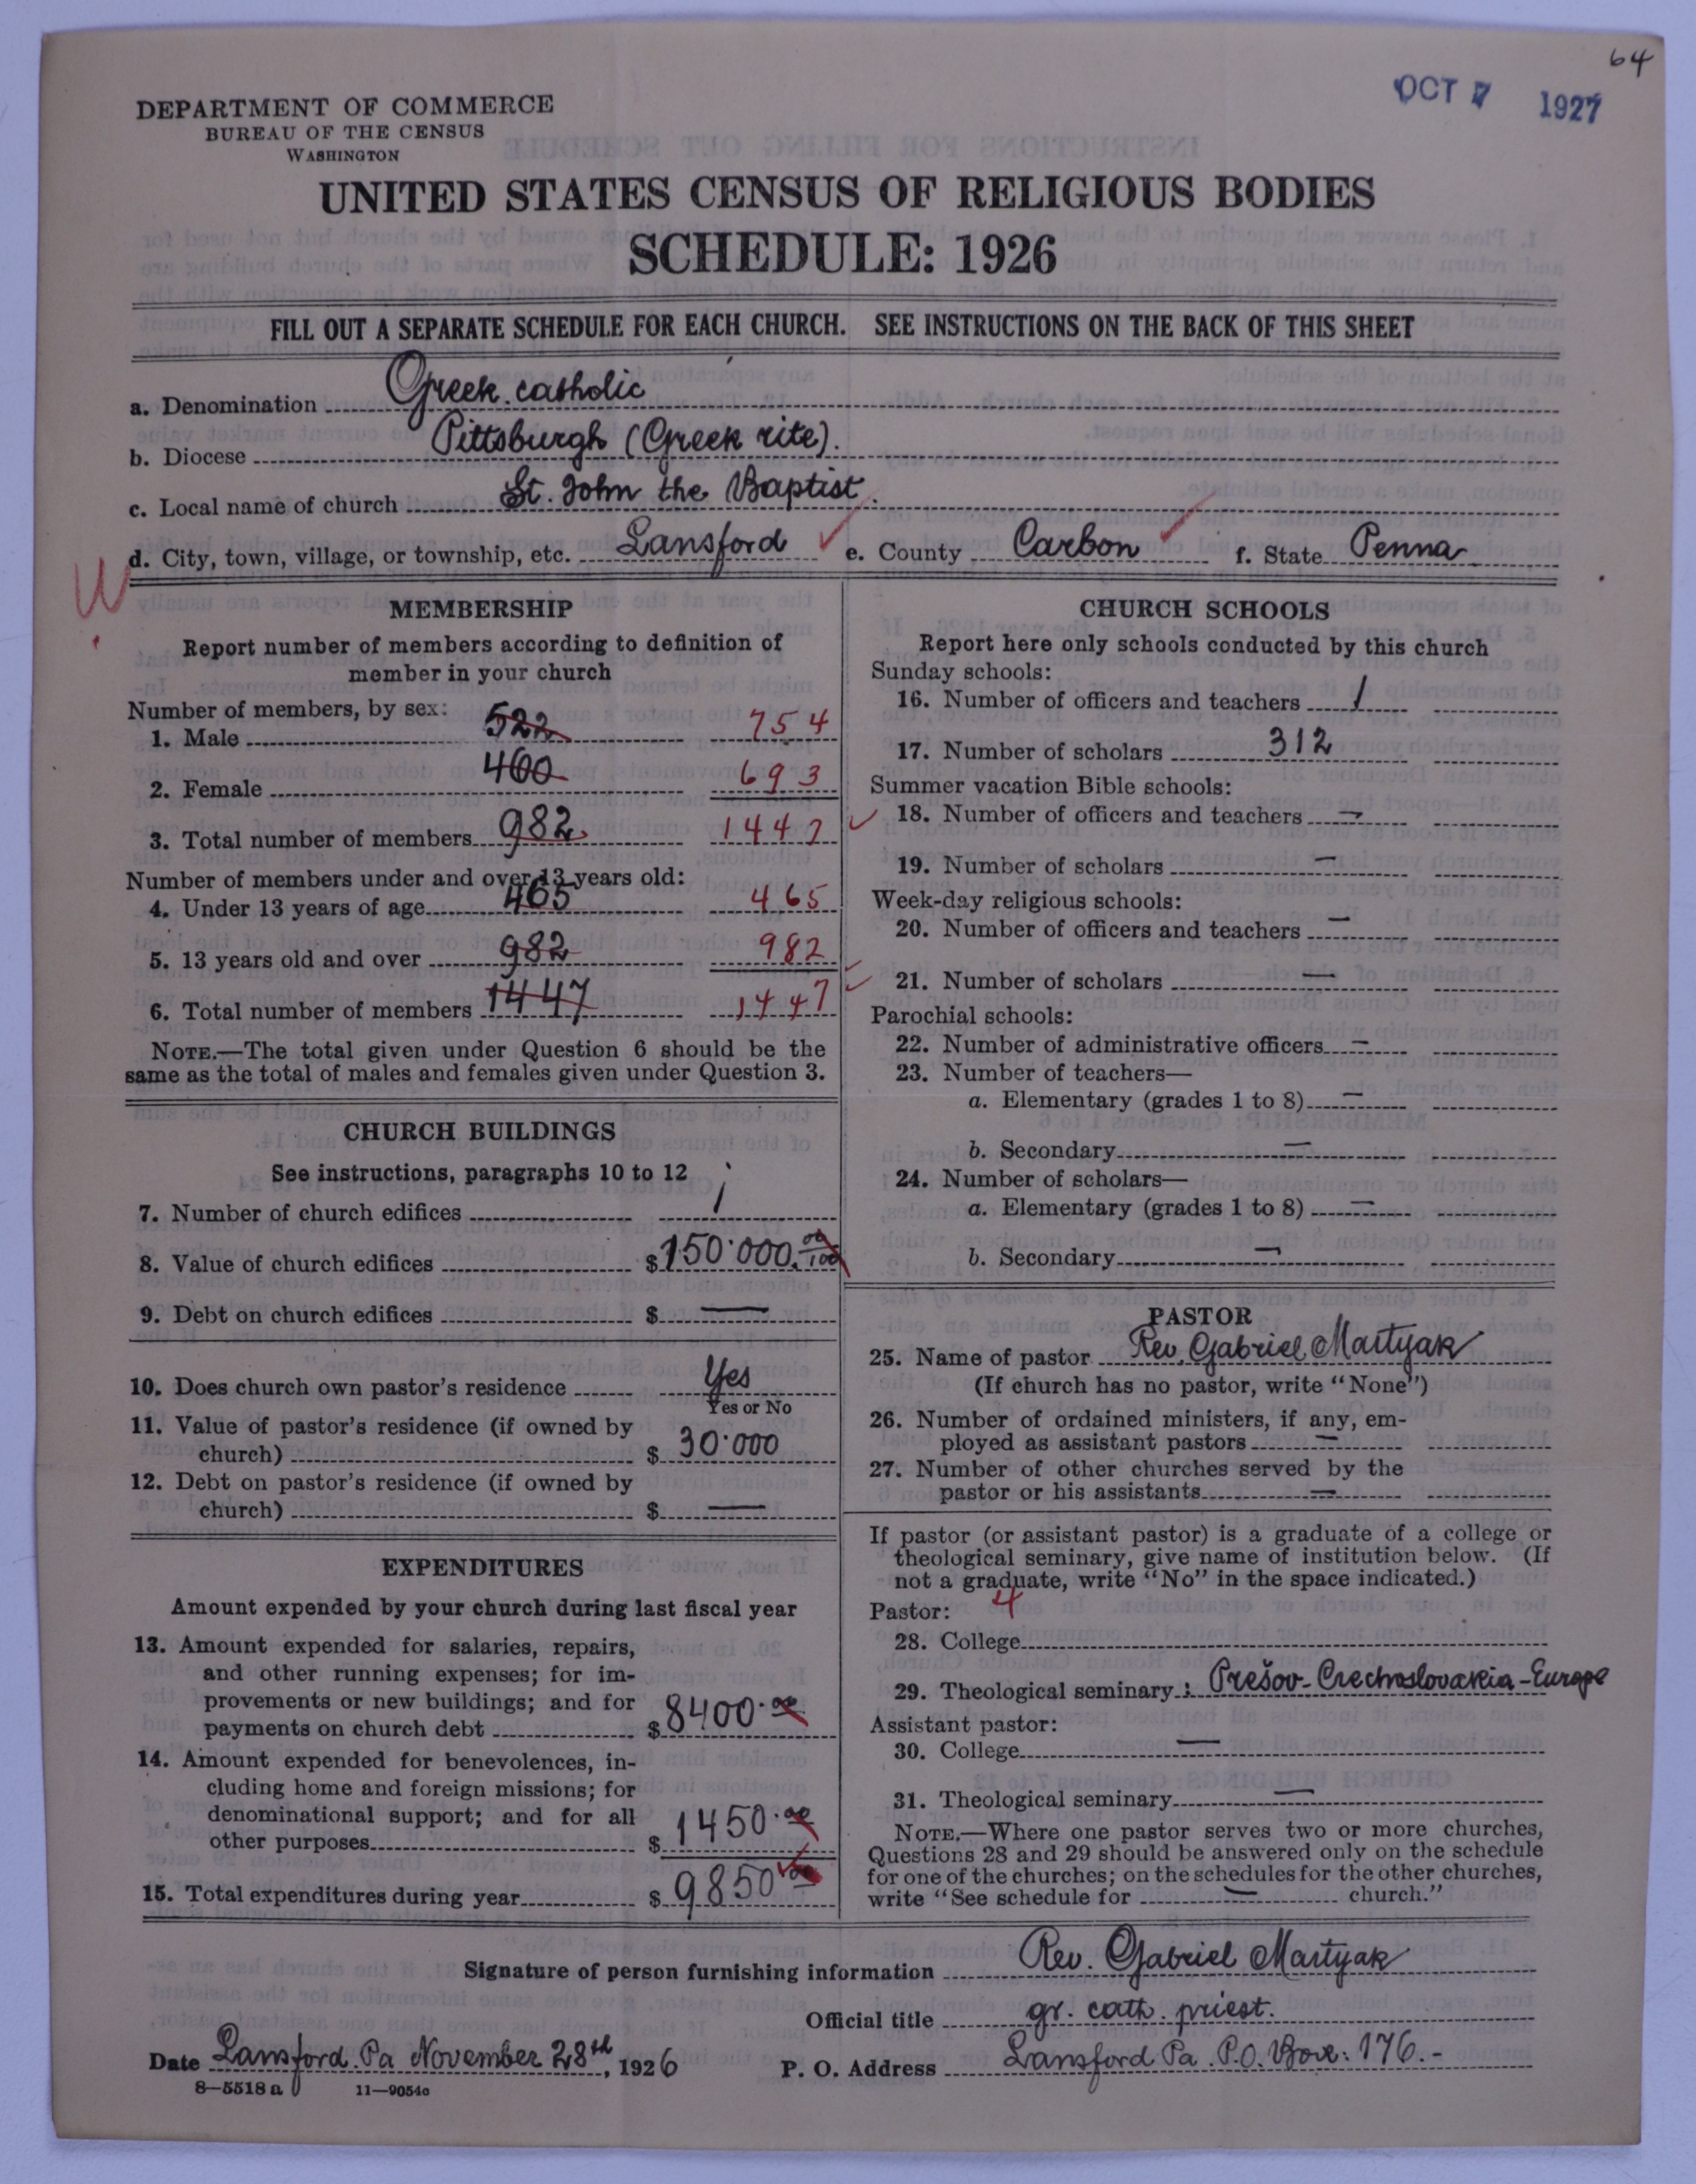 64
OCT 7 1927
DEPARTMENT OF COMMERCE
BUREAU OF THE CENSUS
WASHINGTON
UNITED STATES CENSUS OF RELIGIOUS BODIES
SCHEDULE: 1926
FILL OUT A SEPARATE SCHEDULE FOR EACH CHURCH. SEE INSTRUCTIONS ON THE BACK OF THIS SHEET
a. Denomination Greek catholic
b. Diocese Pittsburgh (Greek rite).
c. Local name of church St. John the Baptist.
d. City, town, village, or township, etc. Lansford e. County Carbon f. State Penna
MEMBERSHIP
Report number of members according to definition of
member in your church
Number of members, by sex:
1. Male 522 754
2. Female 460 693
3. Total number of members 982 1447
Number of members under and over 13 years old:
4. Under 13 years of age 465 465
5. 13 years old and over 982 982
6. Total number of members 1447 1447
NOTE.—The total given under Question 6 should be the
same as the total of males and females given under Question 3.
CHURCH BUILDINGS
See instructions, paragraphs 10 to 12
7. Number of church edifices 1
8. Value of church edifices $150.000.00/100
9. Debt on church edifices $ —
10. Does church own pastor's residence Yes
Yes or No
11. Value of pastor's residence (if owned by
church) $ 30.000
12. Debt on pastor's residence (if owned by
church) $ —
EXPENDITURES
Amount expended by your church during last fiscal year
13. Amount expended for salaries, repairs,
and other running expenses; for im-
provements or new buildings; and for
payments on church debt $ 8400.00
14. Amount expended for benevolences, in-
cluding home and foreign missions; for
denominational support; and for all
other purposes $ 1450.00
15. Total expenditures during year $ 9850
CHURCH SCHOOLS
Report here only schools conducted by this church
Sunday schools:
16. Number of officers and teachers 1
17. Number of scholars 312
Summer vacation Bible schools:
18. Number of officers and teachers —
19. Number of scholars —
Week-day religious schools:
20. Number of officers and teachers —
21. Number of scholars —
Parochial schools:
22. Number of administrative officers —
23. Number of teachers—
a. Elementary (grades 1 to 8) —
b. Secondary —
24. Number of scholars—
a. Elementary (grades 1 to 8) —
b. Secondary —
PASTOR
25. Name of pastor Rev. Gabriel Martyak
(If church has no pastor, write "None")
26. Number of ordained ministers, if any, em-
ployed as assistant pastors —
27. Number of other churches served by the
pastor or his assistants —
If pastor (or assistant pastor) is a graduate of a college or
theological seminary, give name of institution below. (If
not a graduate, write "No" in the space indicated.)
Pastor: 4
28. College
29. Theological seminary: Prešov-Czechoslovakia-Europe
Assistant pastor:
30. College —
31. Theological seminary —
NOTE.—Where one pastor serves two or more churches,
Questions 28 and 29 should be answered only on the schedule
for one of the churches; on the schedules for the other churches,
write "See schedule for — church."
Signature of person furnishing information Rev. Gabriel Martyak
Official title gr. cath. priest.
Date Lansford. Pa November 28th, 1926 P. O. Address Lansford Pa. P.O. Box: 176.-
8—5518a 11—9054a